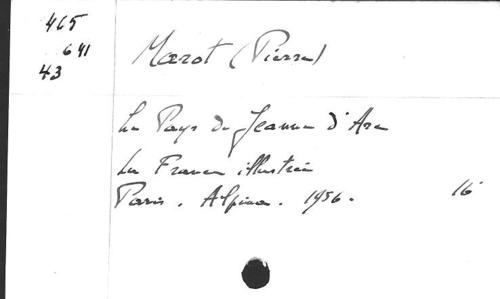 465
641
43
Marot (Pierre)
Le Pays de Jeanne d'Arc
La France illustrée
Paris. Alpina. 1956. 16°